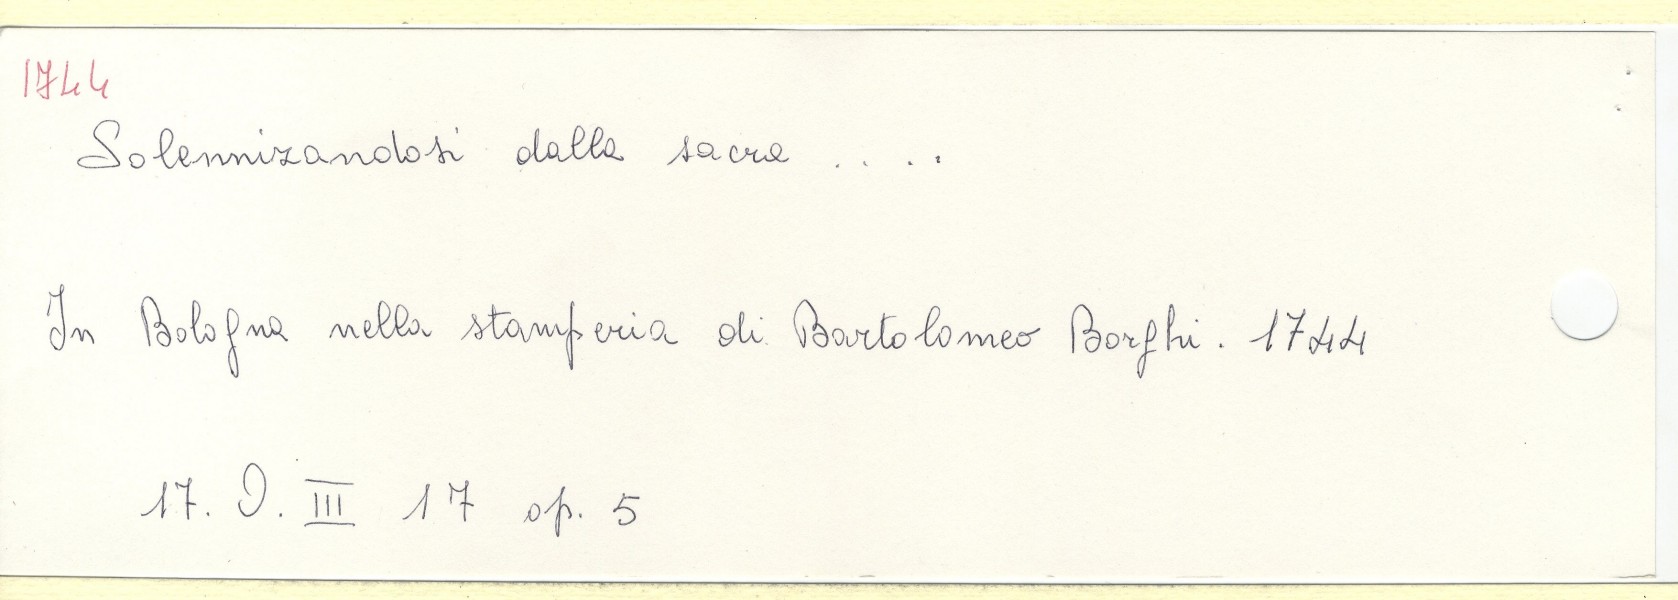 1744
Solennizandosi dalla sacra .....
In Bologna nella stamperia di Bartolomeo Borghi. 1744
17. O. III 17 op. 5